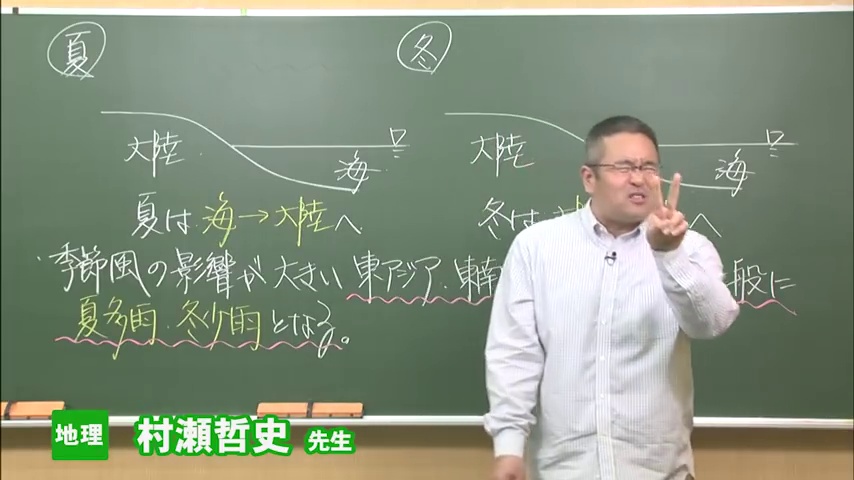 夏
冬
大陸
海
大陸
海
夏は 海→大陸へ
冬は
へ
季節風の影響が大きい 東アジア・東南
般に
夏多雨・冬少雨となる。
地理
村瀬哲史 先生